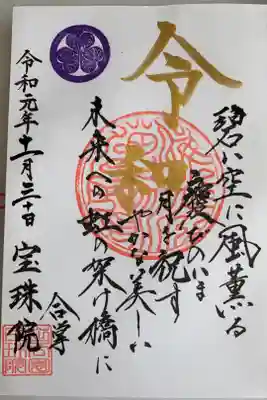 令和
碧い空に風薫る
慶びのいま
月を祝す
やかな美しい
未来への虹の架け橋に
合掌
令和元年十一月三十日
宝珠院